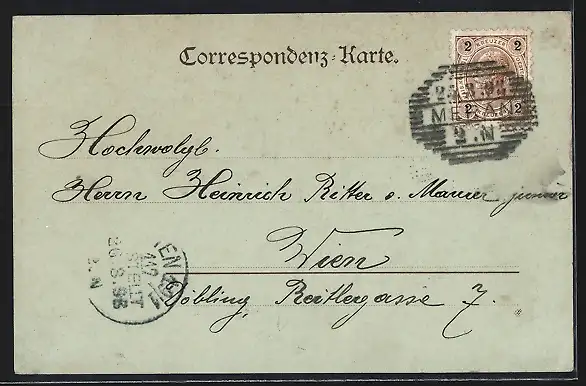 Correspondenz-Karte.
2 KREUZER 2
2 2
MERAN
N
Hochwolgb.
Herrn Heinrich Ritter v. Maurer junior
Wien
Döbling, Reitlergasse 7.
WIEN
BESTELLT
26.8.98
2.N